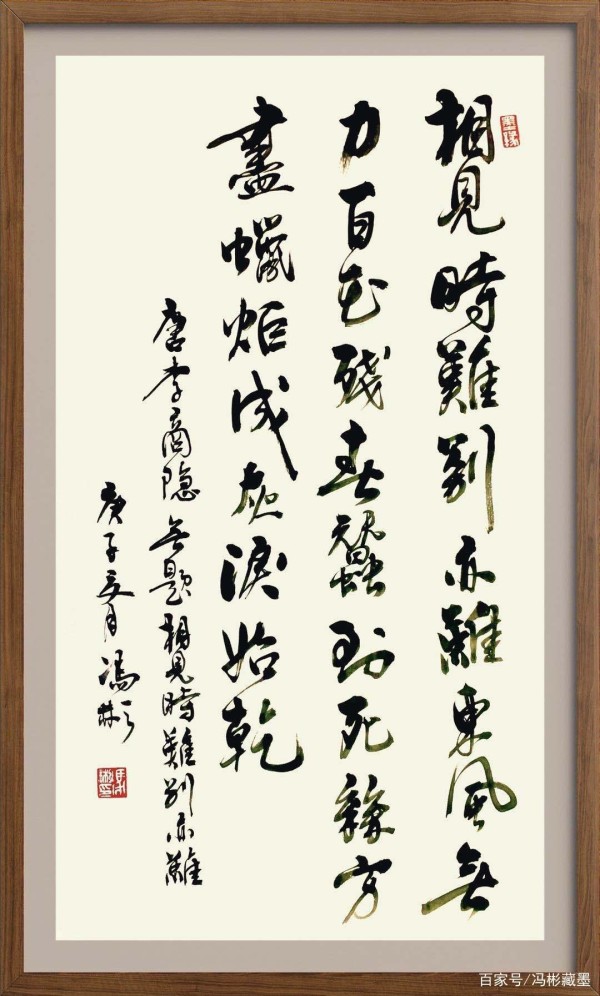 相見時難别亦難東風無
力百花殘春蠶到死絲方
盡蠟炬成灰淚始乾
唐李商隐無題相見時難别亦難
庚子夏月馮彬
百家号/冯彬藏墨